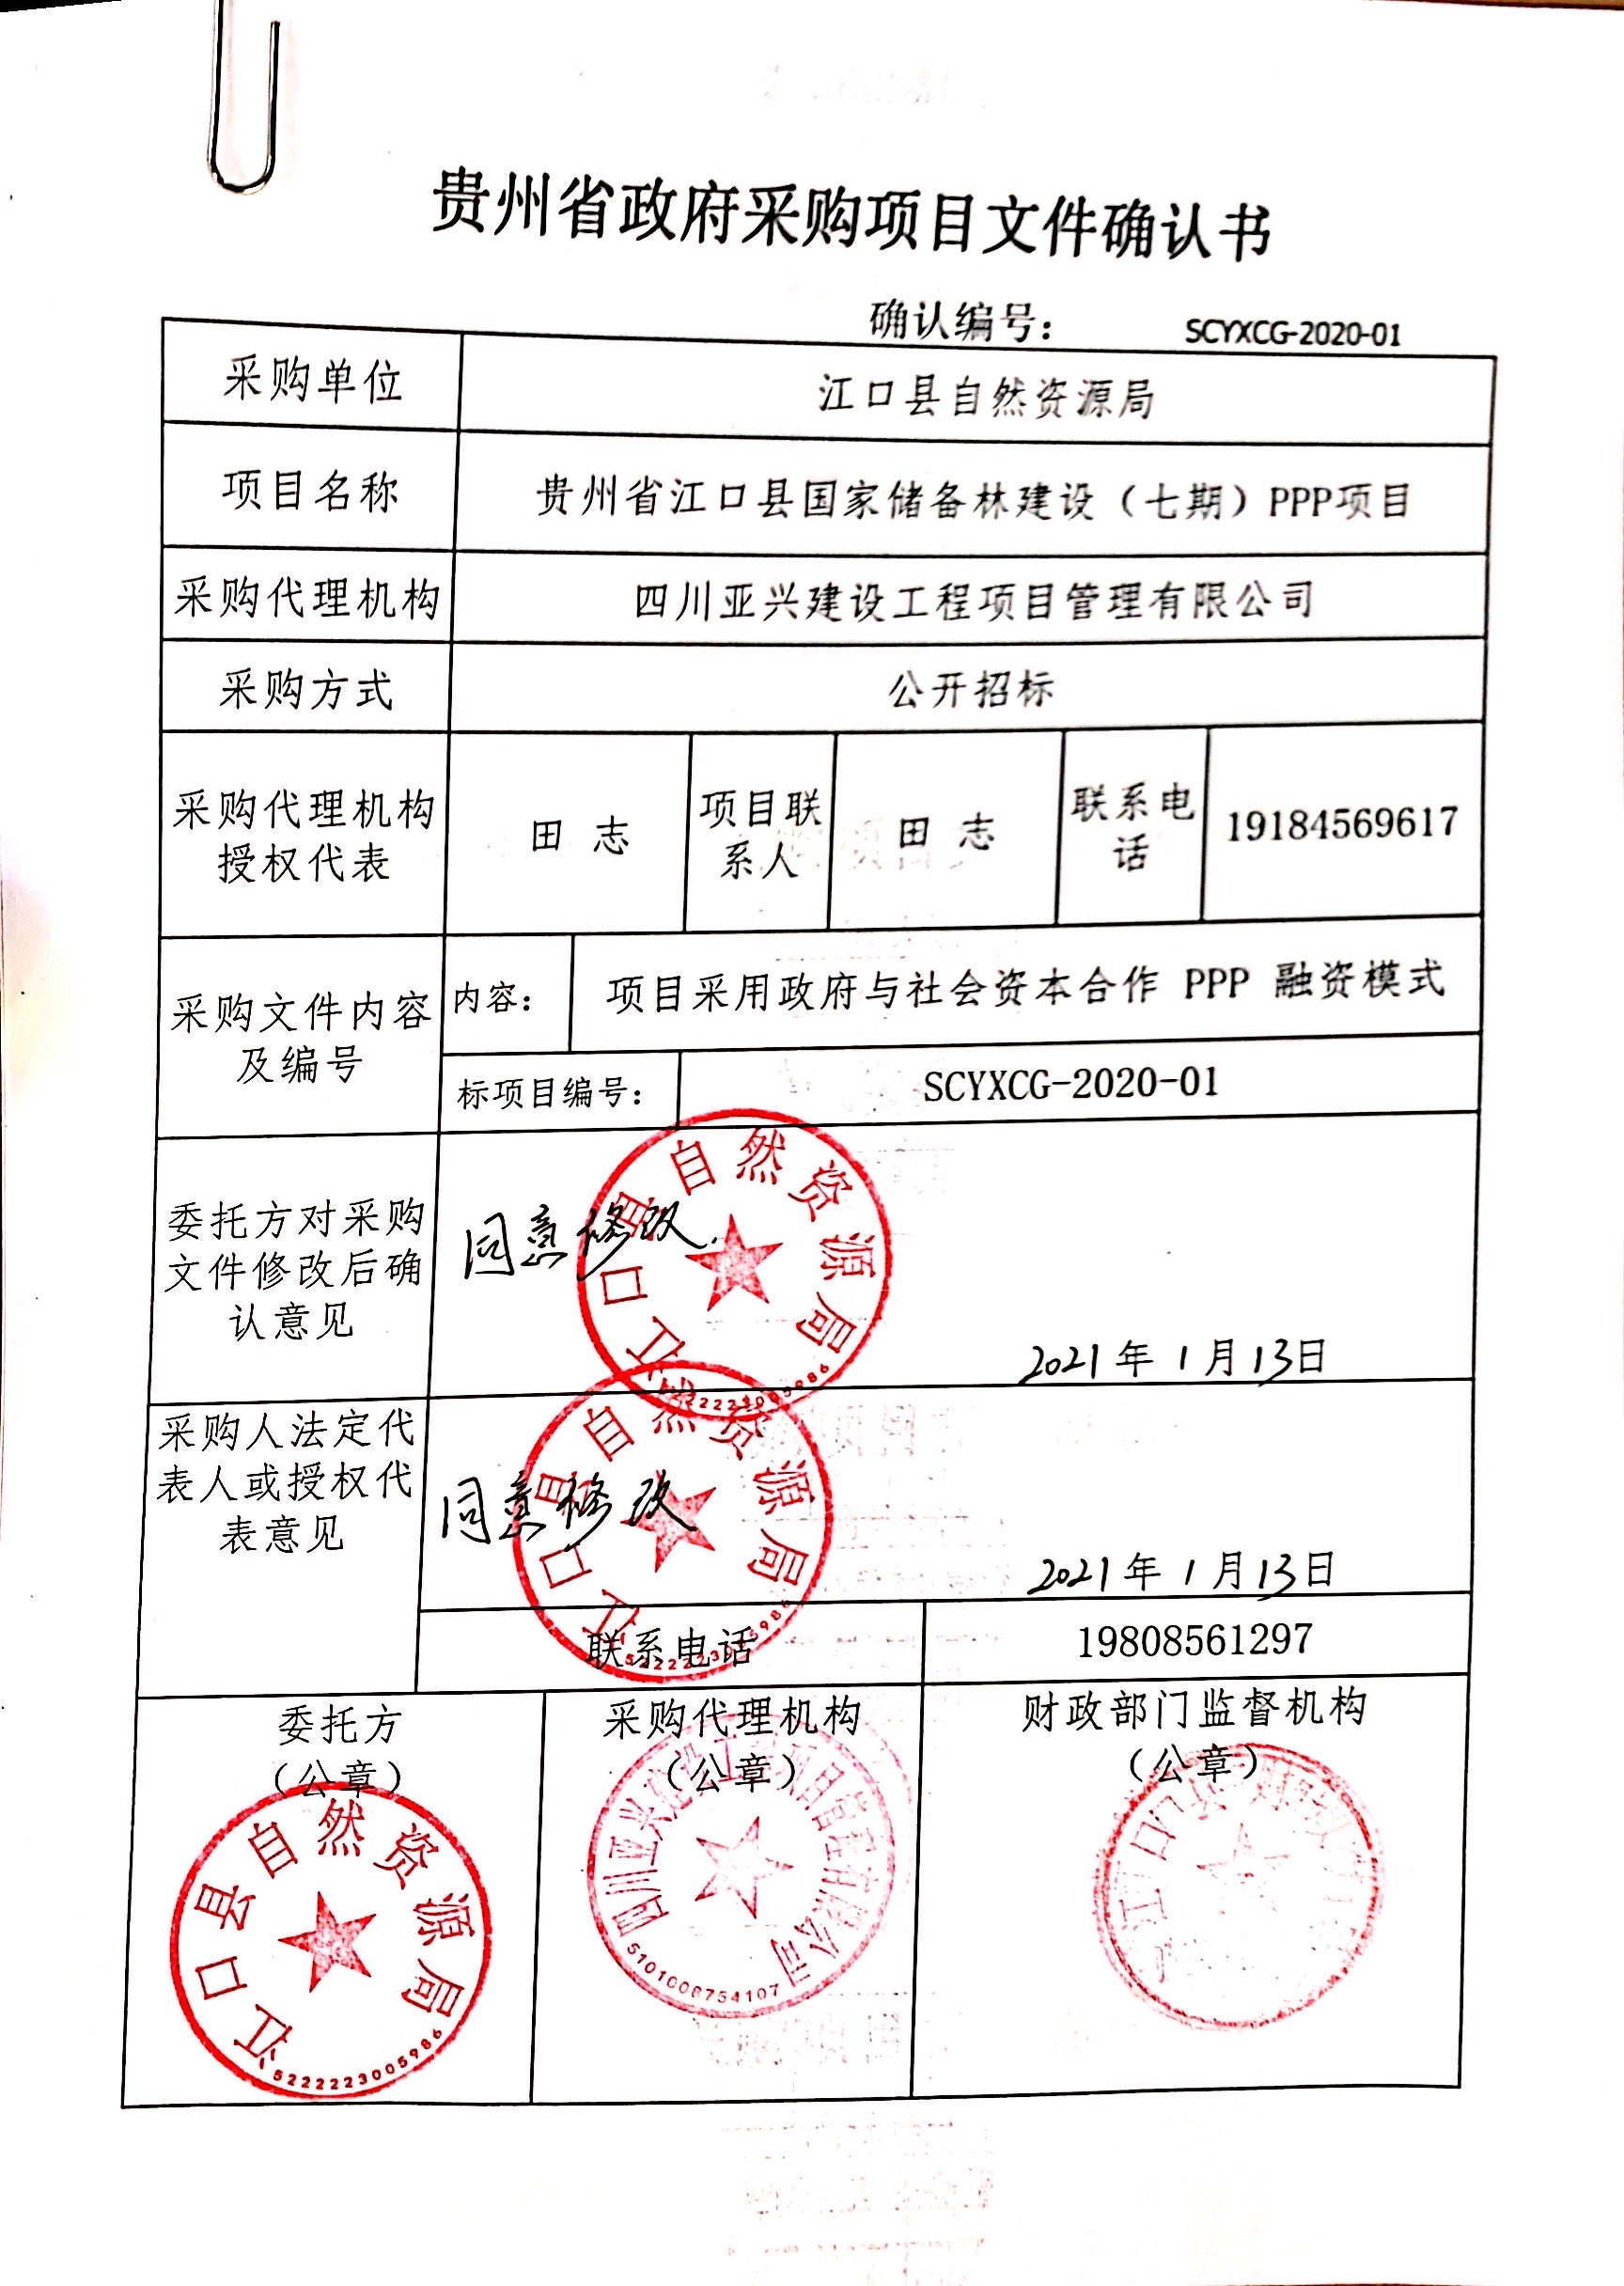 贵州省政府采购项目文件确认书
确认编号： SCYXCG-2020-01
采购单位 江口县自然资源局
项目名称 贵州省江口县国家储备林建设（七期）PPP项目
采购代理机构 四川亚兴建设工程项目管理有限公司
采购方式 公开招标
采购代理机构
授权代表
田 志
项目联
系人
田 志
联系电
话
19184569617
采购文件内容
及编号
内容： 项目采用政府与社会资本合作 PPP 融资模式
标项目编号： SCYXCG-2020-01
委托方对采购
文件修改后确
认意见
同意修改.
江口县自然资源局
2021年1月13日
采购人法定代
表人或授权代
表意见
同意修改
江口县自然资源局
2021年1月13日
联系电话 19808561297
委托方
（公章）
江口县自然资源局
5222223005986
采购代理机构
（公章）
四川亚兴建设工程项目管理有限公司
5101008754107
财政部门监督机构
（公章）
江口县财政